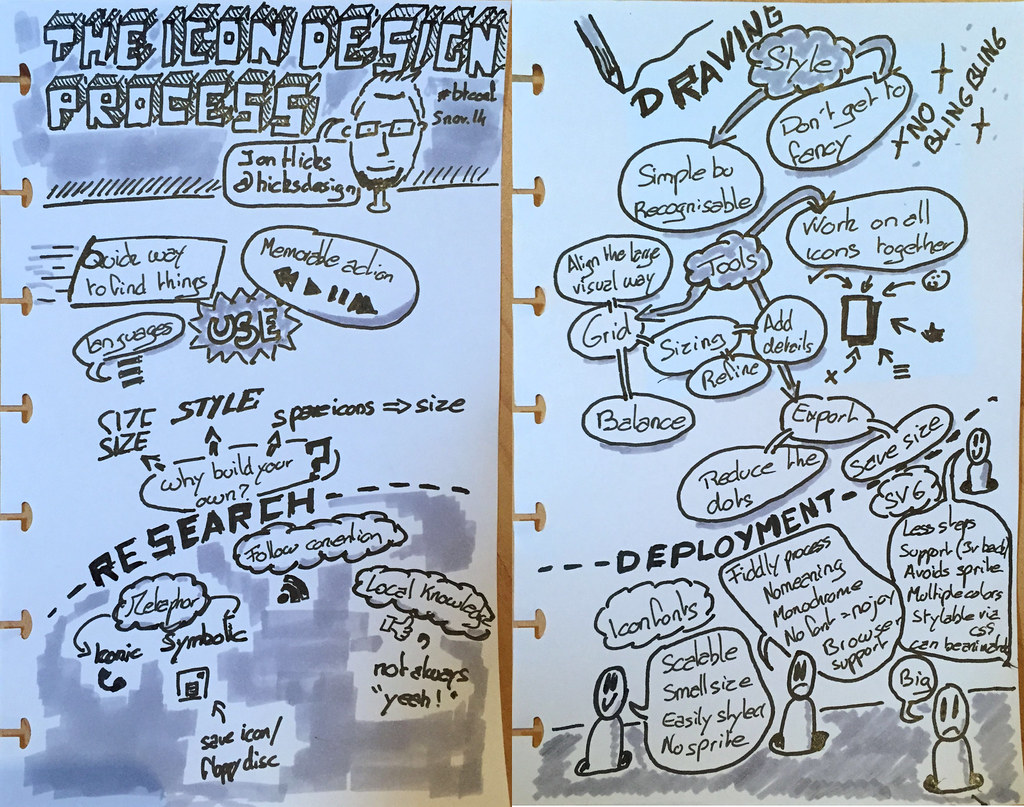 THE ICON DESIGN
PROCESS
#btconf
5 nov. 14
Jon Hicks
@hicksdesign
Quick way
to find things
Memorable action
USE
languages
SIZE
SIZE
STYLE
Spare icons => size
Why build your
own?
RESEARCH
Follow convention
Metaphor
Local Knowledge
Iconic
Symbolic
not always
"yeah!"
save icon/
floppy disc
DRAWING
Style
Don't get to
fancy
NO
BLING BLING
Simple bu
Recognisable
Tools
Work on all
icons together
Align the large
visual way
Grid
Sizing
Add
details
Refine
Balance
Export
Save size
Reduce the
dots
DEPLOYMENT
SVG
Icon fonts
Fiddly process
No meaning
Monochrome
No font = no joy
Browser
support
Less steps
Support (3v back)
Avoids sprite
Multiple colors
Stylable via
CSS
can be animated
Scalable
Small size
Easily styled
No sprite
Big